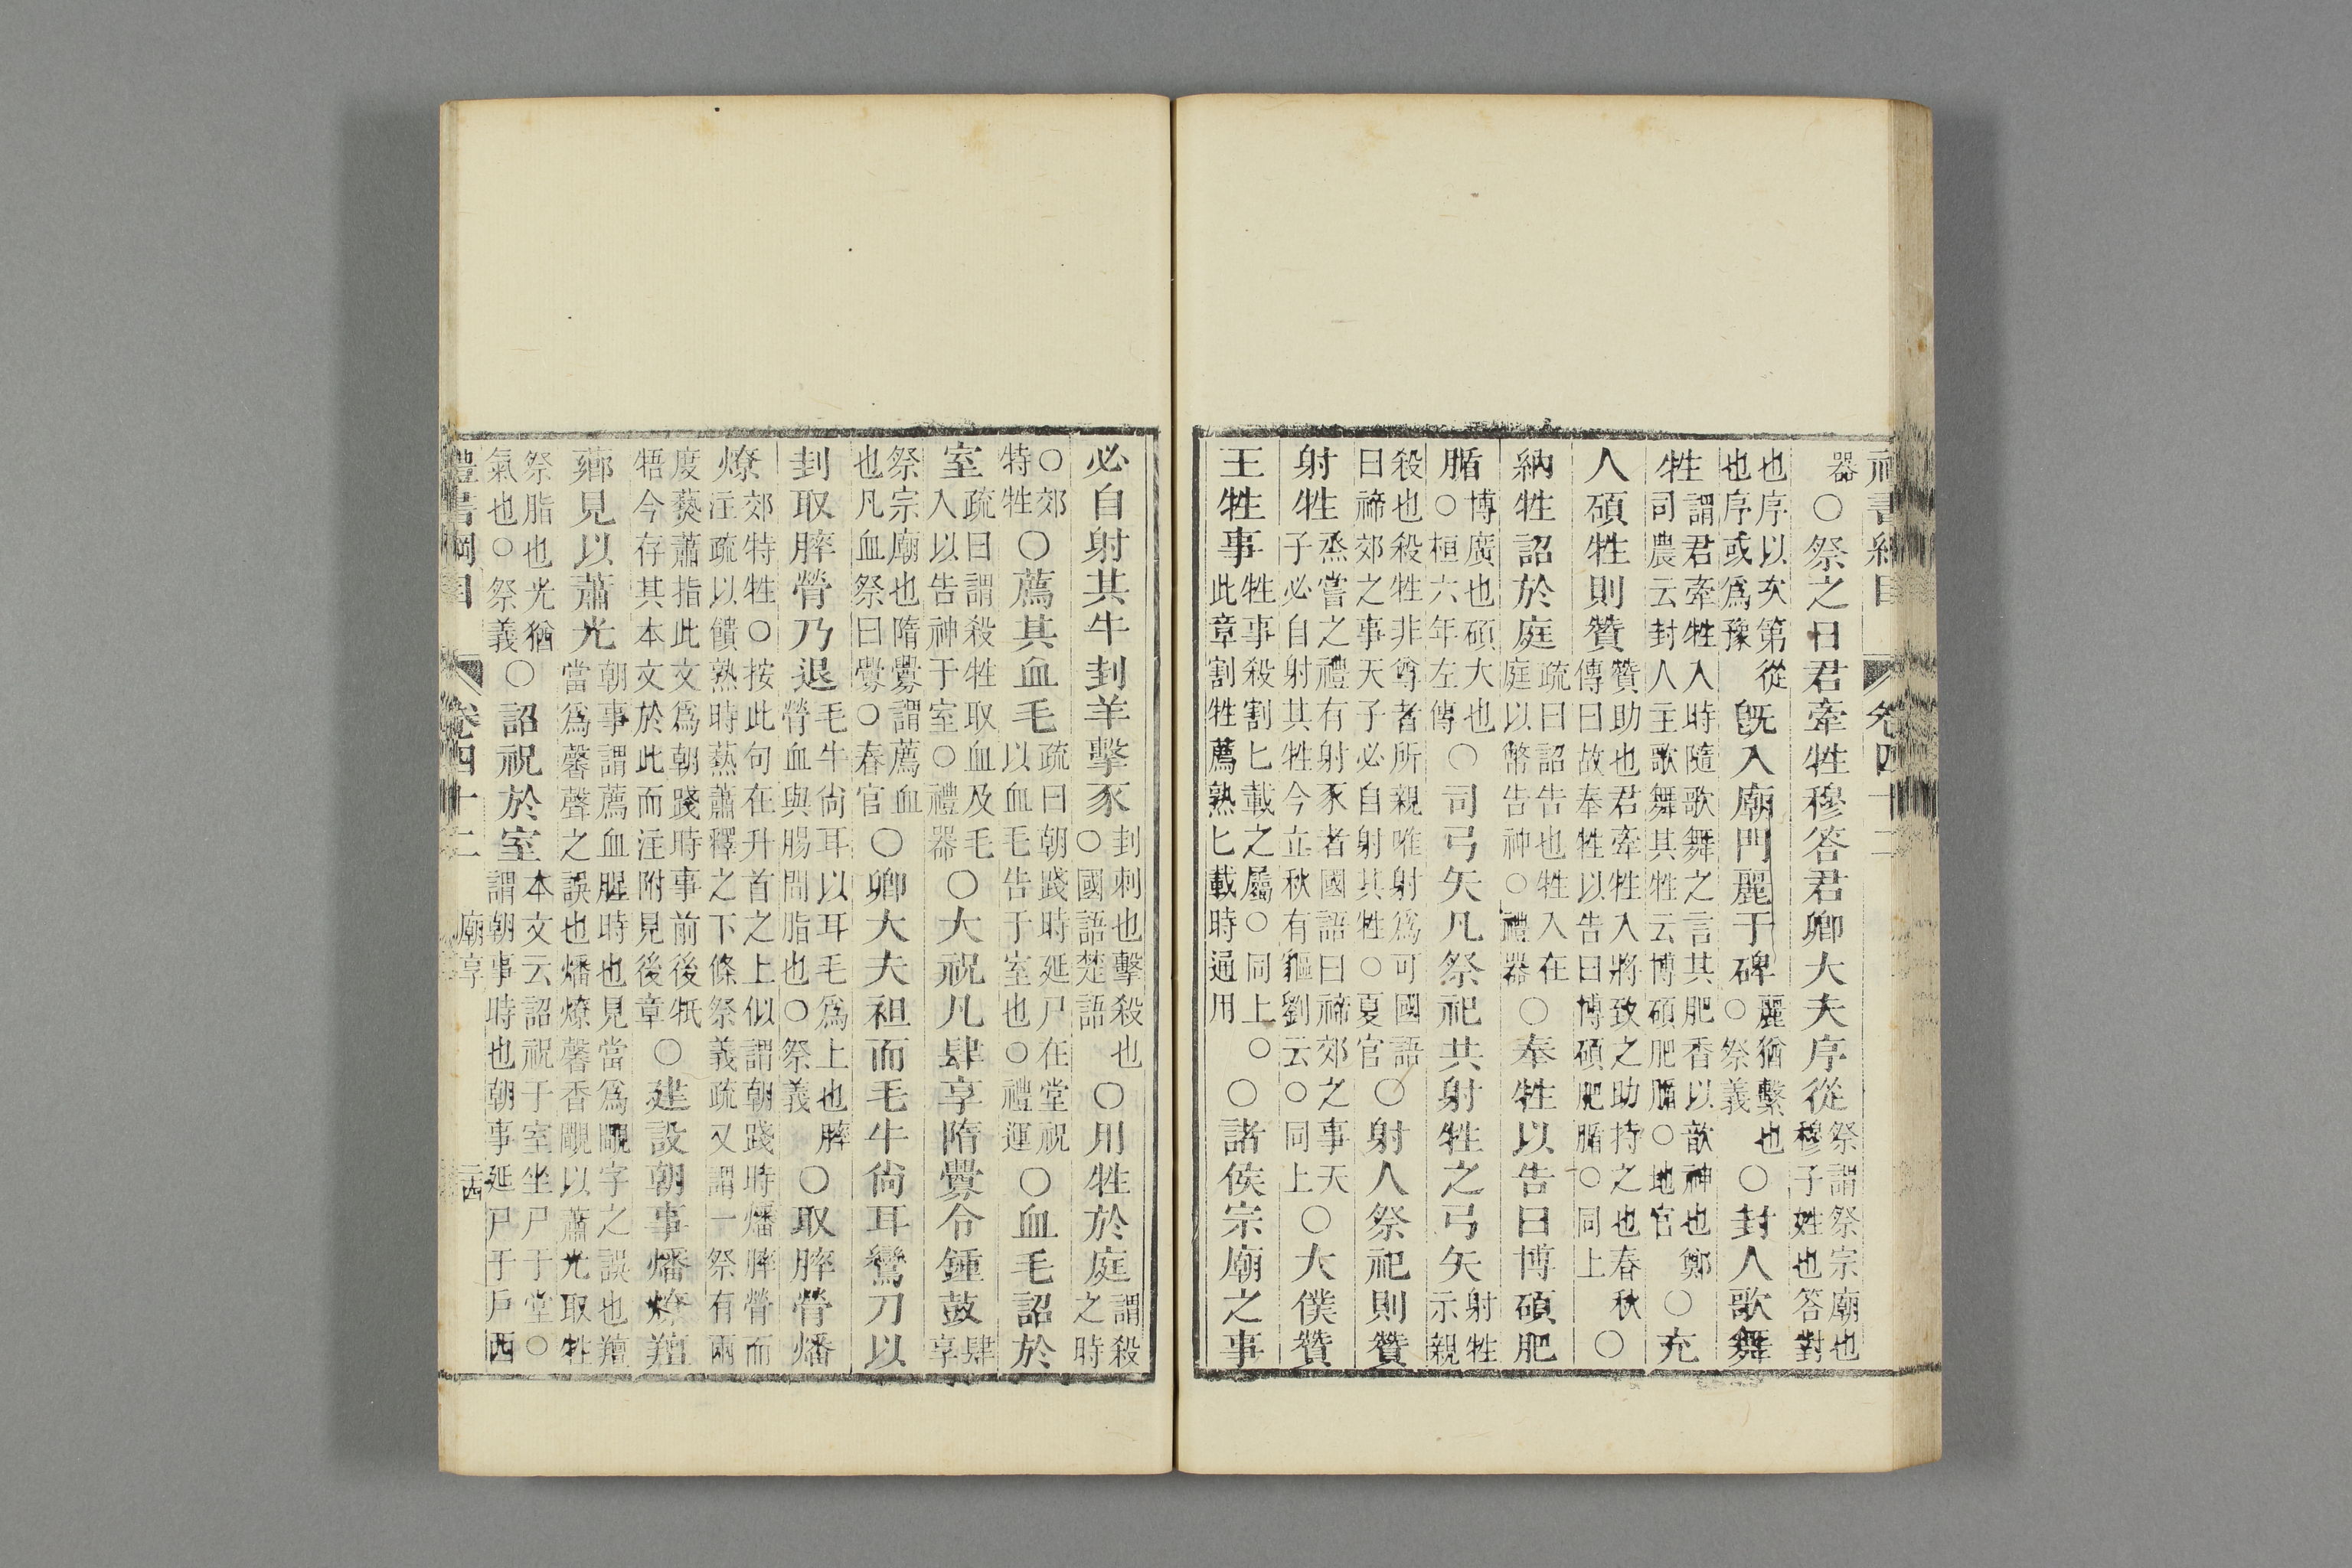 禮書綱目 卷四十二
器○祭之日君牽牲穆答君卿大夫序從祭謂祭宗廟也穆子姓也答對
也序以次第從也序或爲豫既入廟門麗于碑麗猶繫也○祭義○封人歌舞
牲謂君牽牲入時隨歌舞之言其肥香以歆神也鄭司農云封人主歌舞其牲云博碩肥腯○地官○充
人碩牲則贊贊助也君牽牲入將致之助持之也春秋傳曰故奉牲以告曰博碩肥腯○同上○
納牲詔於庭疏曰詔告也牲入在庭以幣告神○禮器○奉牲以告曰博碩肥
腯博廣也碩大也○桓六年左傳○司弓矢凡祭祀共射牲之弓矢射牲示親
殺也殺牲非尊者所親唯射爲可國語曰禘郊之事天子必自射其牲○夏官○射人祭祀則贊
射牲烝嘗之禮有射豕者國語曰禘郊之事天子必自射其牲今立秋有貙劉云○同上○大僕贊
王牲事牲事殺割匕載之屬○同上○此章割牲薦熟匕載時通用○諸侯宗廟之事
必自射其牛刲羊擊豕刲刺也擊殺也○國語楚語○用牲於庭謂殺之時
○郊特牲○薦其血毛疏曰朝踐時延尸在堂祝以血毛告于室也○禮運○血毛詔於
室疏曰謂殺牲取血及毛入以告神于室○禮器○大祝凡肆享隋釁令鍾鼓肆享
祭宗廟也隋釁謂薦血也凡血祭曰釁○春官○卿大夫袒而毛牛尙耳鸞刀以
刲取膟膋乃退毛牛尙耳以耳毛爲上也膟膋血與腸間脂也○祭義○取膟膋燔
燎郊特牲○按此句在升首之上似謂朝踐時燔膟膋而注疏以饋熟時爇蕭釋之下條祭義疏又謂一祭有兩
度爇蕭指此文爲朝踐時事前後牴牾今存其本文於此而注附見後章○建設朝事燔燎羶
薌見以蕭光朝事謂薦血腥時也見當爲覸字之誤也羶當爲馨聲之誤也燔燎馨香覸以蕭光取牲
祭脂也光猶氣也○祭義○詔祝於室本文云詔祝于室坐尸于堂○謂朝事時也朝事延尸于戶西
禮書綱目 卷四十二 廟享 二四